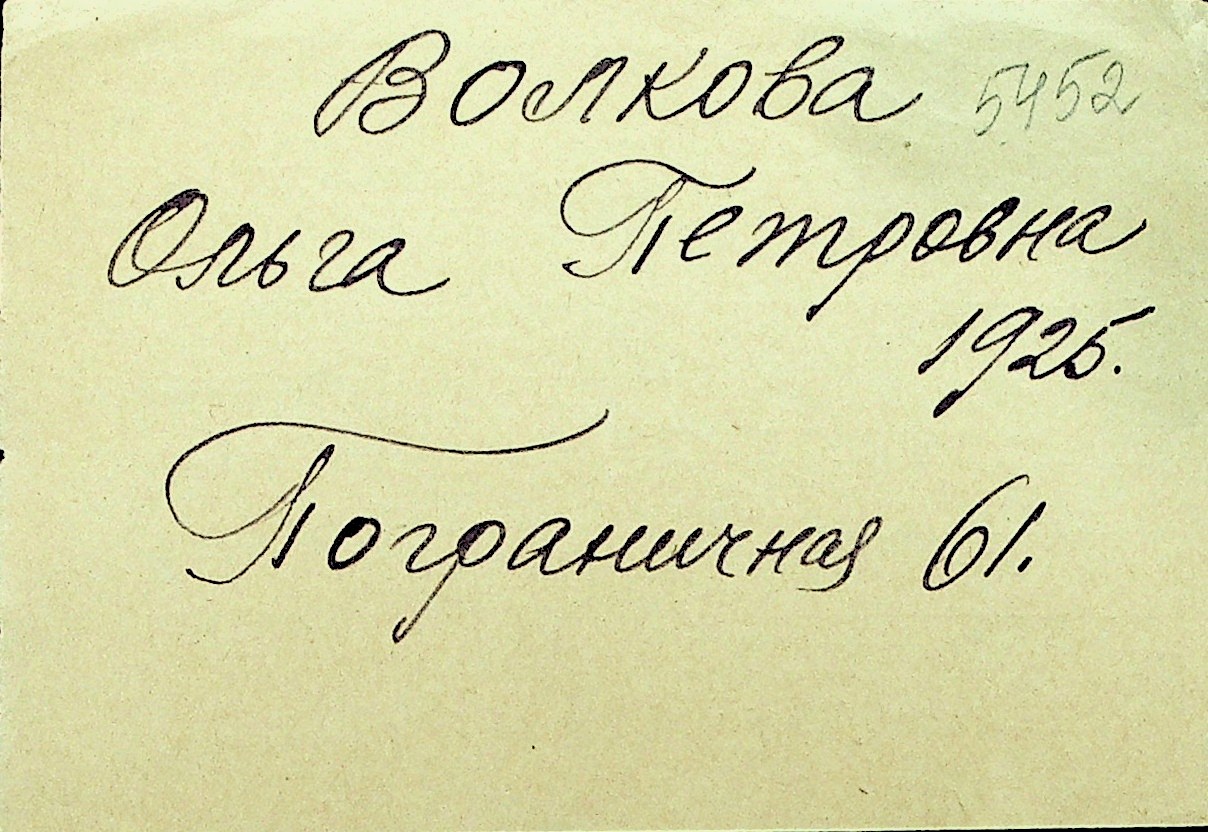 Волкова 5452
Ольга Петровна
1925.
Пограничная 61.